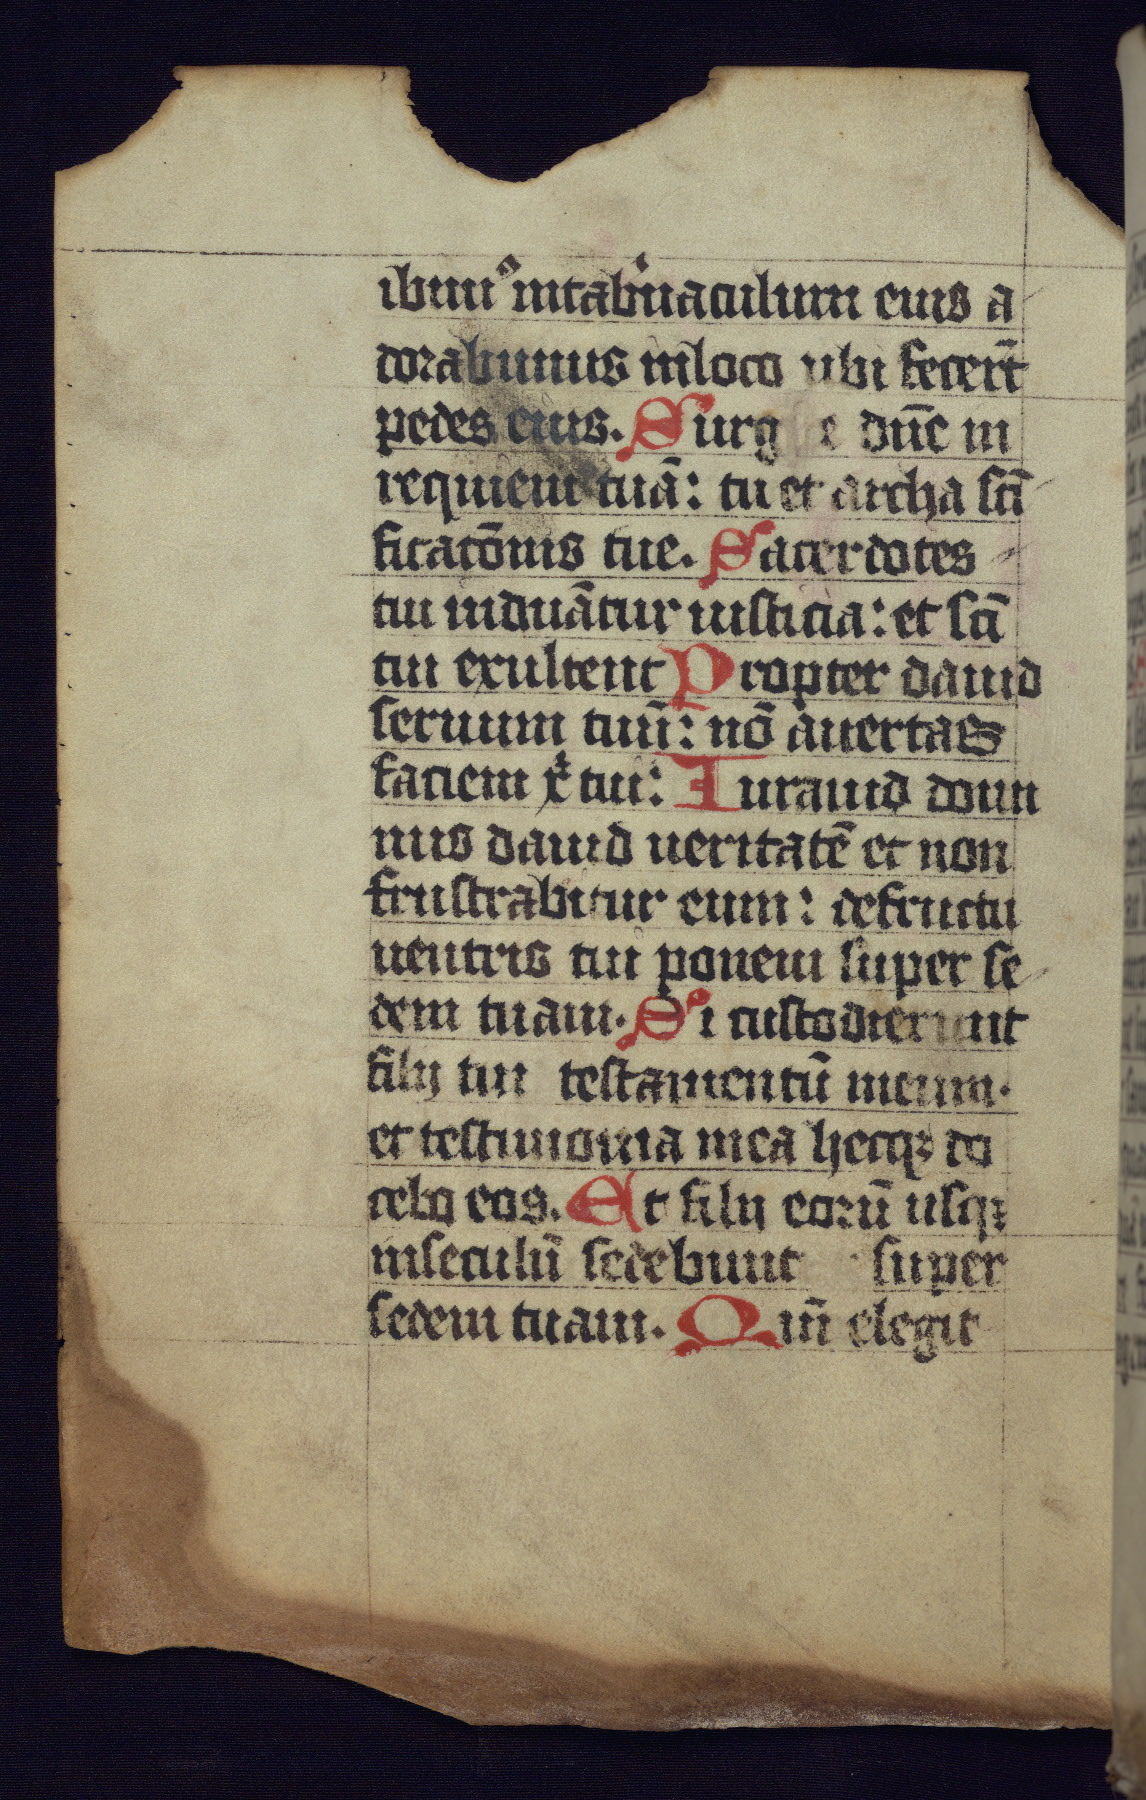 ibimꝰ intab'naculum eius a
dorabimus inloco ubi fecer̄t
pedes eius. Surg e dn̄e in
requiem tuā: tu et archa sc̄i
ficatōnis tue. Sacerdotes
tui induātur iusticia: et sc̄i
tui exultent Propter dauid
seruum tuū: nō auertas
faciem xp̄i tui: Iurauid domi
nus dauid ueritatē et non
frustrabitur eum: defructu
uentris tui ponem super se
dem tuam. Si custodierunt
filij tui testamentū meum.
et testimonia mea hecqꝫ do
cebo eos. Et filij eorū usqꝫ
inseculū sedebunt super
sedem tuam. Qm̄ elegit